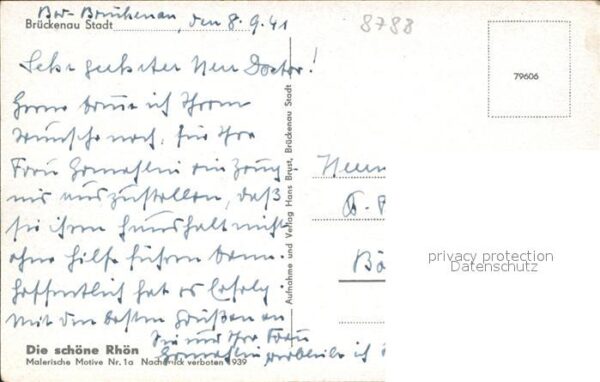 Bad-Brückenau, den 8.9.41
Brückenau Stadt
8788
Sehr geehrter Herr Doctor!
Gerne komme ich Ihrem
Wunsche nach, für Ihre
Frau Gemahlin ein Zeug-
nis auszustellen, daß
sie ihren Haushalt nicht
ohne Hilfe führen kann.
Hoffentlich hat es Erfolg.
Mit den besten Grüßen an
Sie und Ihre Frau
Gemahlin verbleibe ich
Aufnahme und Verlag Hans Brust, Brückenau Stadt
79606
Herrn
Bö
privacy protection
Datenschutz
Die schöne Rhön
Malerische Motive Nr. 1a Nachdruck verboten 1939